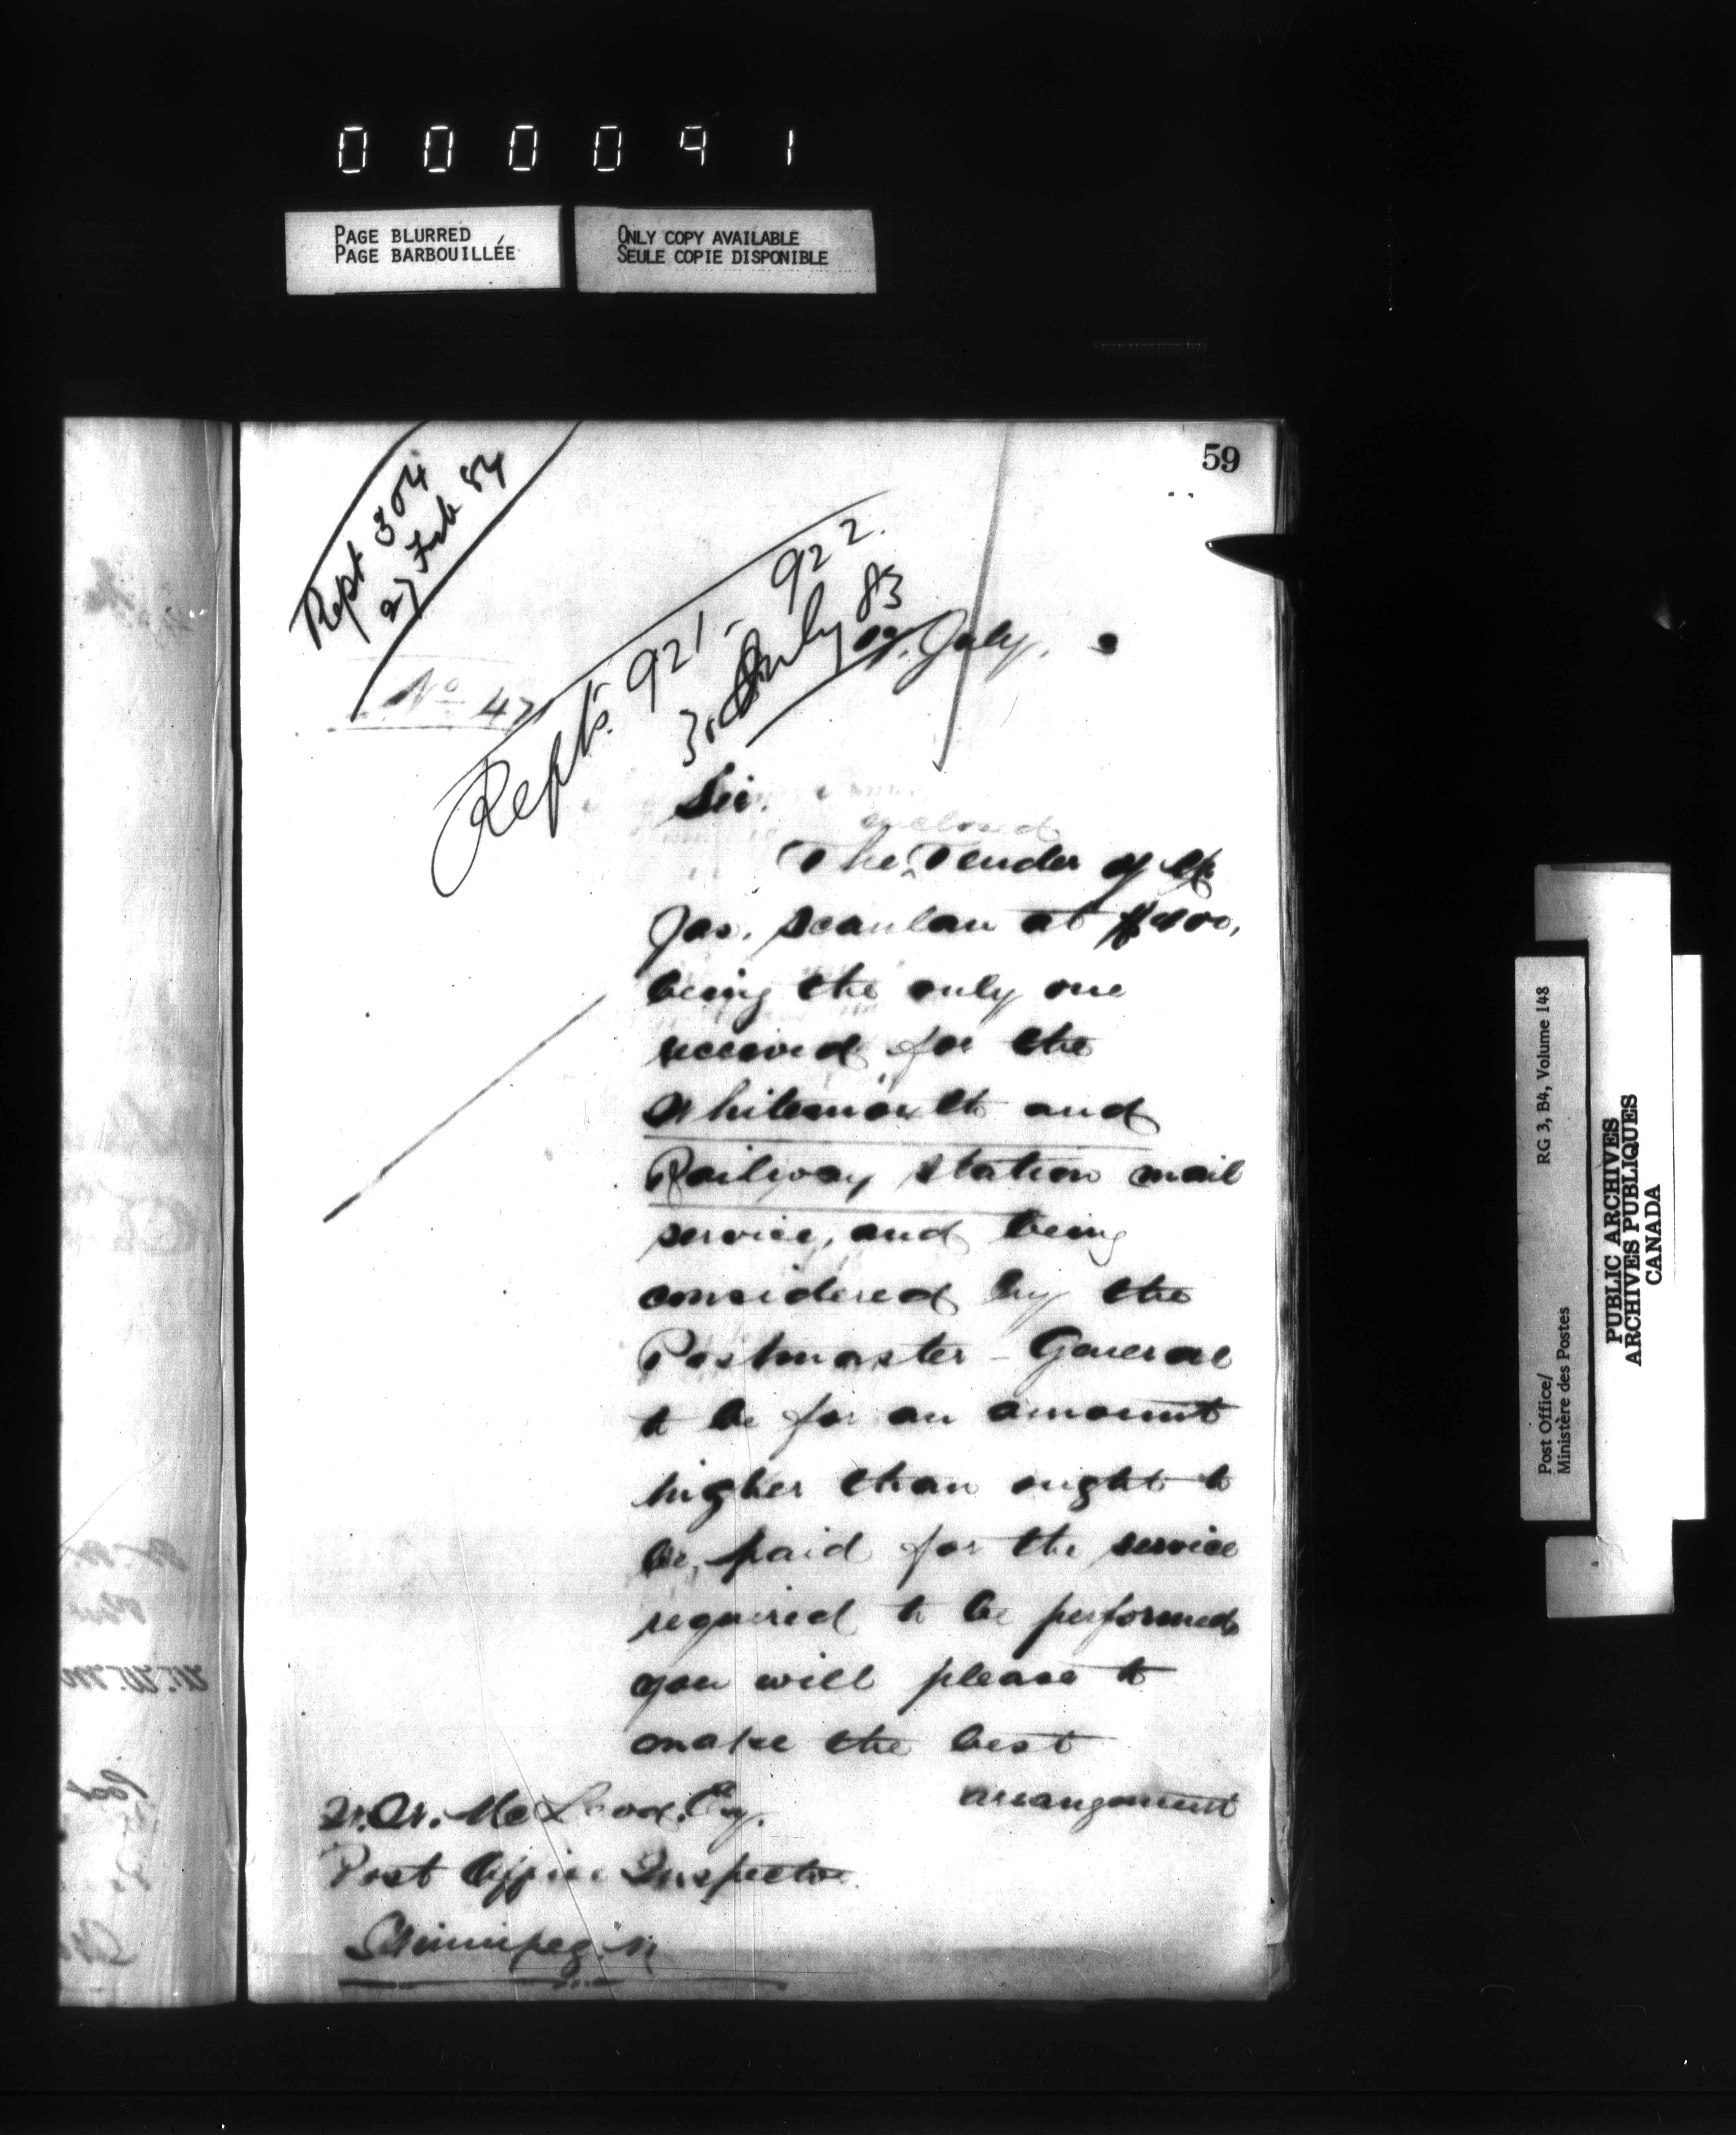 000091
PAGE BLURRED
PAGE BARBOUILLÉE
ONLY COPY AVAILABLE
SEULE COPIE DISPONIBLE
59
Rept 304
27 Feb 84
Repts. 921 - 922.
30 July 83
July. 3
No 47
Sir.
enclosed
The Tender of Mr
Jas. Scanlan at $400,
being the only one
received for the
Whitemouth and
Railway Station mail
service, and being
considered by the
Postmaster-General
to be for an amount
higher than ought to
be paid for the service
required to be performed
you will please to
make the best
arrangement
W.W. McLeod. Esq.
Post Office Inspector
Winnipeg. M
Post Office/
Ministère des Postes
RG 3, B4, Volume 148
PUBLIC ARCHIVES
ARCHIVES PUBLIQUES
CANADA